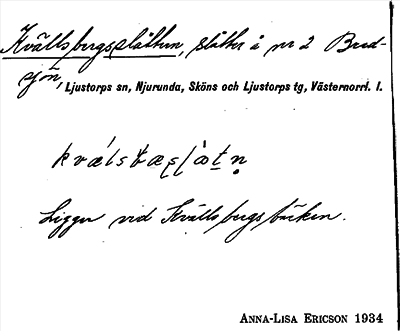 Kvällsbergsslåtten, slåtter å nr 2 Bred-
sjön, Ljustorps sn, Njurunda, Sköns och Ljustorps tg, Västernorrl. l.
Ligger vid Kvällsbergsbäcken.
ANNA-LISA ERICSON 1934